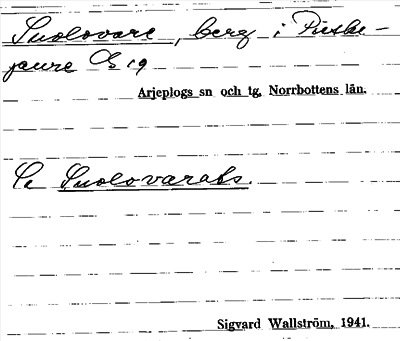 Suolovare, berg i Pieske-
jaure G 19
Arjeplogs sn och tg, Norrbottens län.
Se Suolovarats.
Sigvard Wallström, 1941.